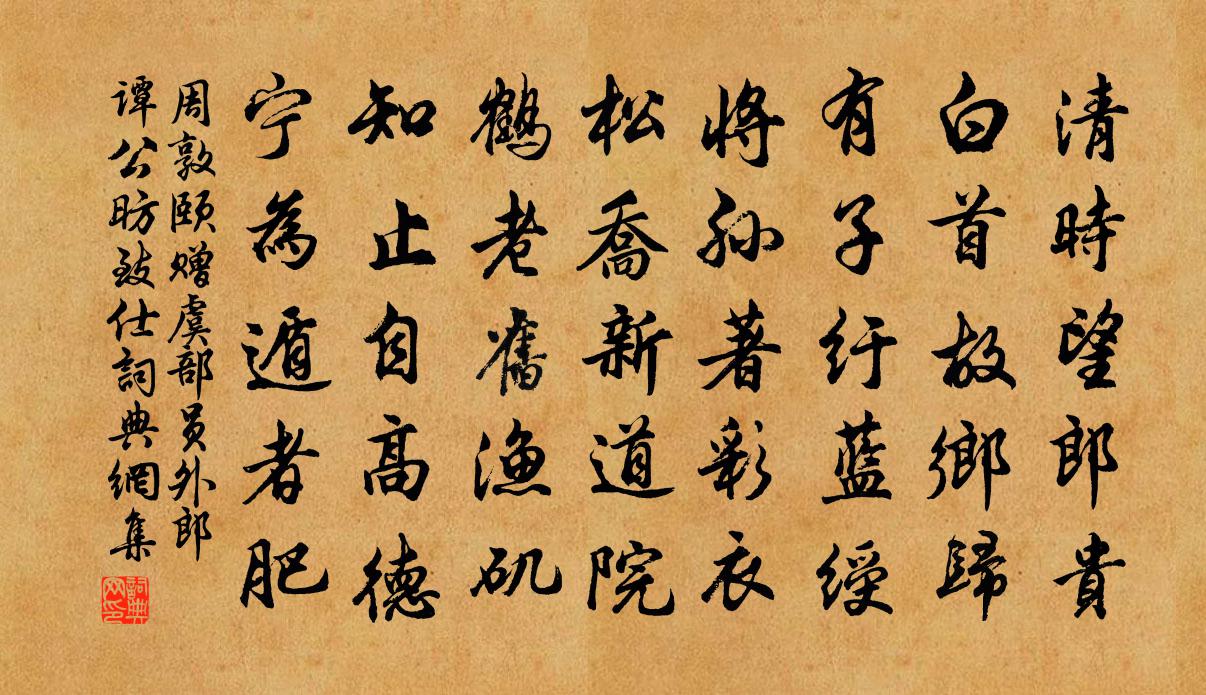 清時望郎貴
白首故鄉歸
有子紆藍綬
將孫著彩衣
松喬新道院
鶴老舊漁矶
知止自高德
宁為遁者肥
周敦颐赠虞部员外郎
谭公昉致仕詞典網集
詞典网印